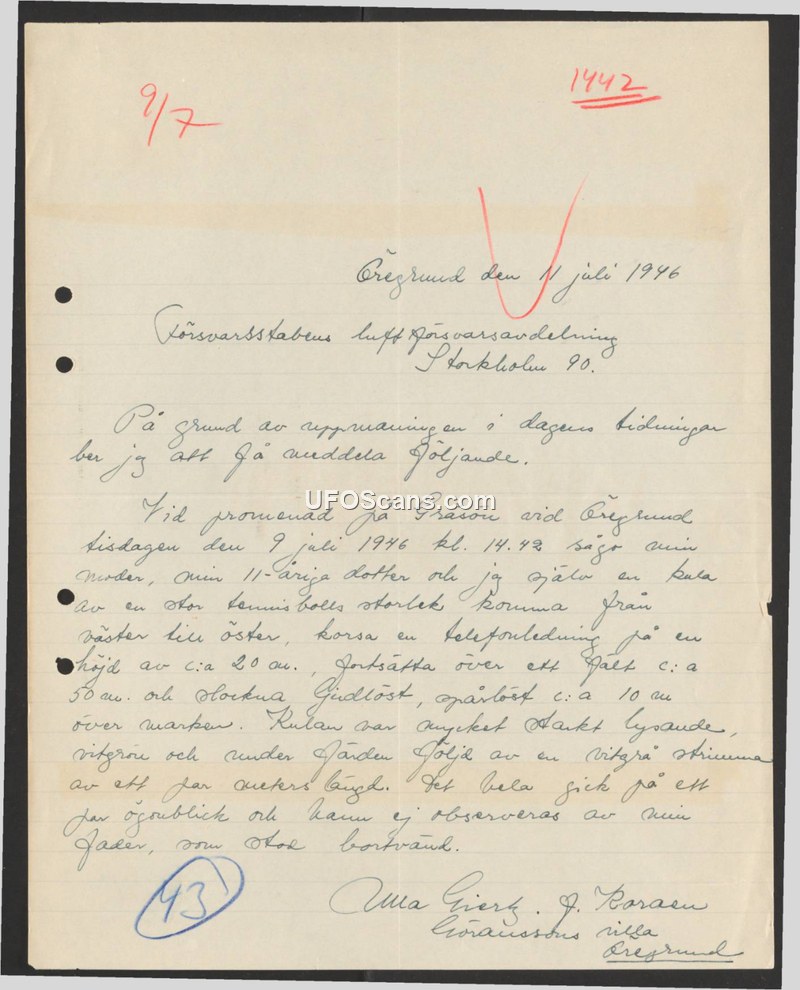 9/7
1442
Öregrund den 11 juli 1946
Försvarsstabens luftförsvarsavdelning
Stockholm 90.
På grund av uppmaningen i dagens tidningar
ber jag att få meddela följande.
UFOScans.com
Vid promenad på Gräsön vid Öregrund
tisdagen den 9 juli 1946 kl. 14.42 sågo min
moder, min 11-åriga dotter och jag själv en kula
av en stor tennisbolls storlek komma från
väster till öster, korsa en telefonledning på en
höjd av c:a 20 m., fortsätta över ett fält c:a
50 m. och slockna ljudlöst, spårlöst c:a 10 m
över marken. Kulan var mycket starkt lysande,
vitgrön och under färden följd av en vitgrå strimma
av ett par meters längd. Det hela gick på ett
par ögonblick och hann ej observeras av min
fader, som stod bortvänd.
Ulla Giertz. f.
Göranssons villa
Öregrund
43